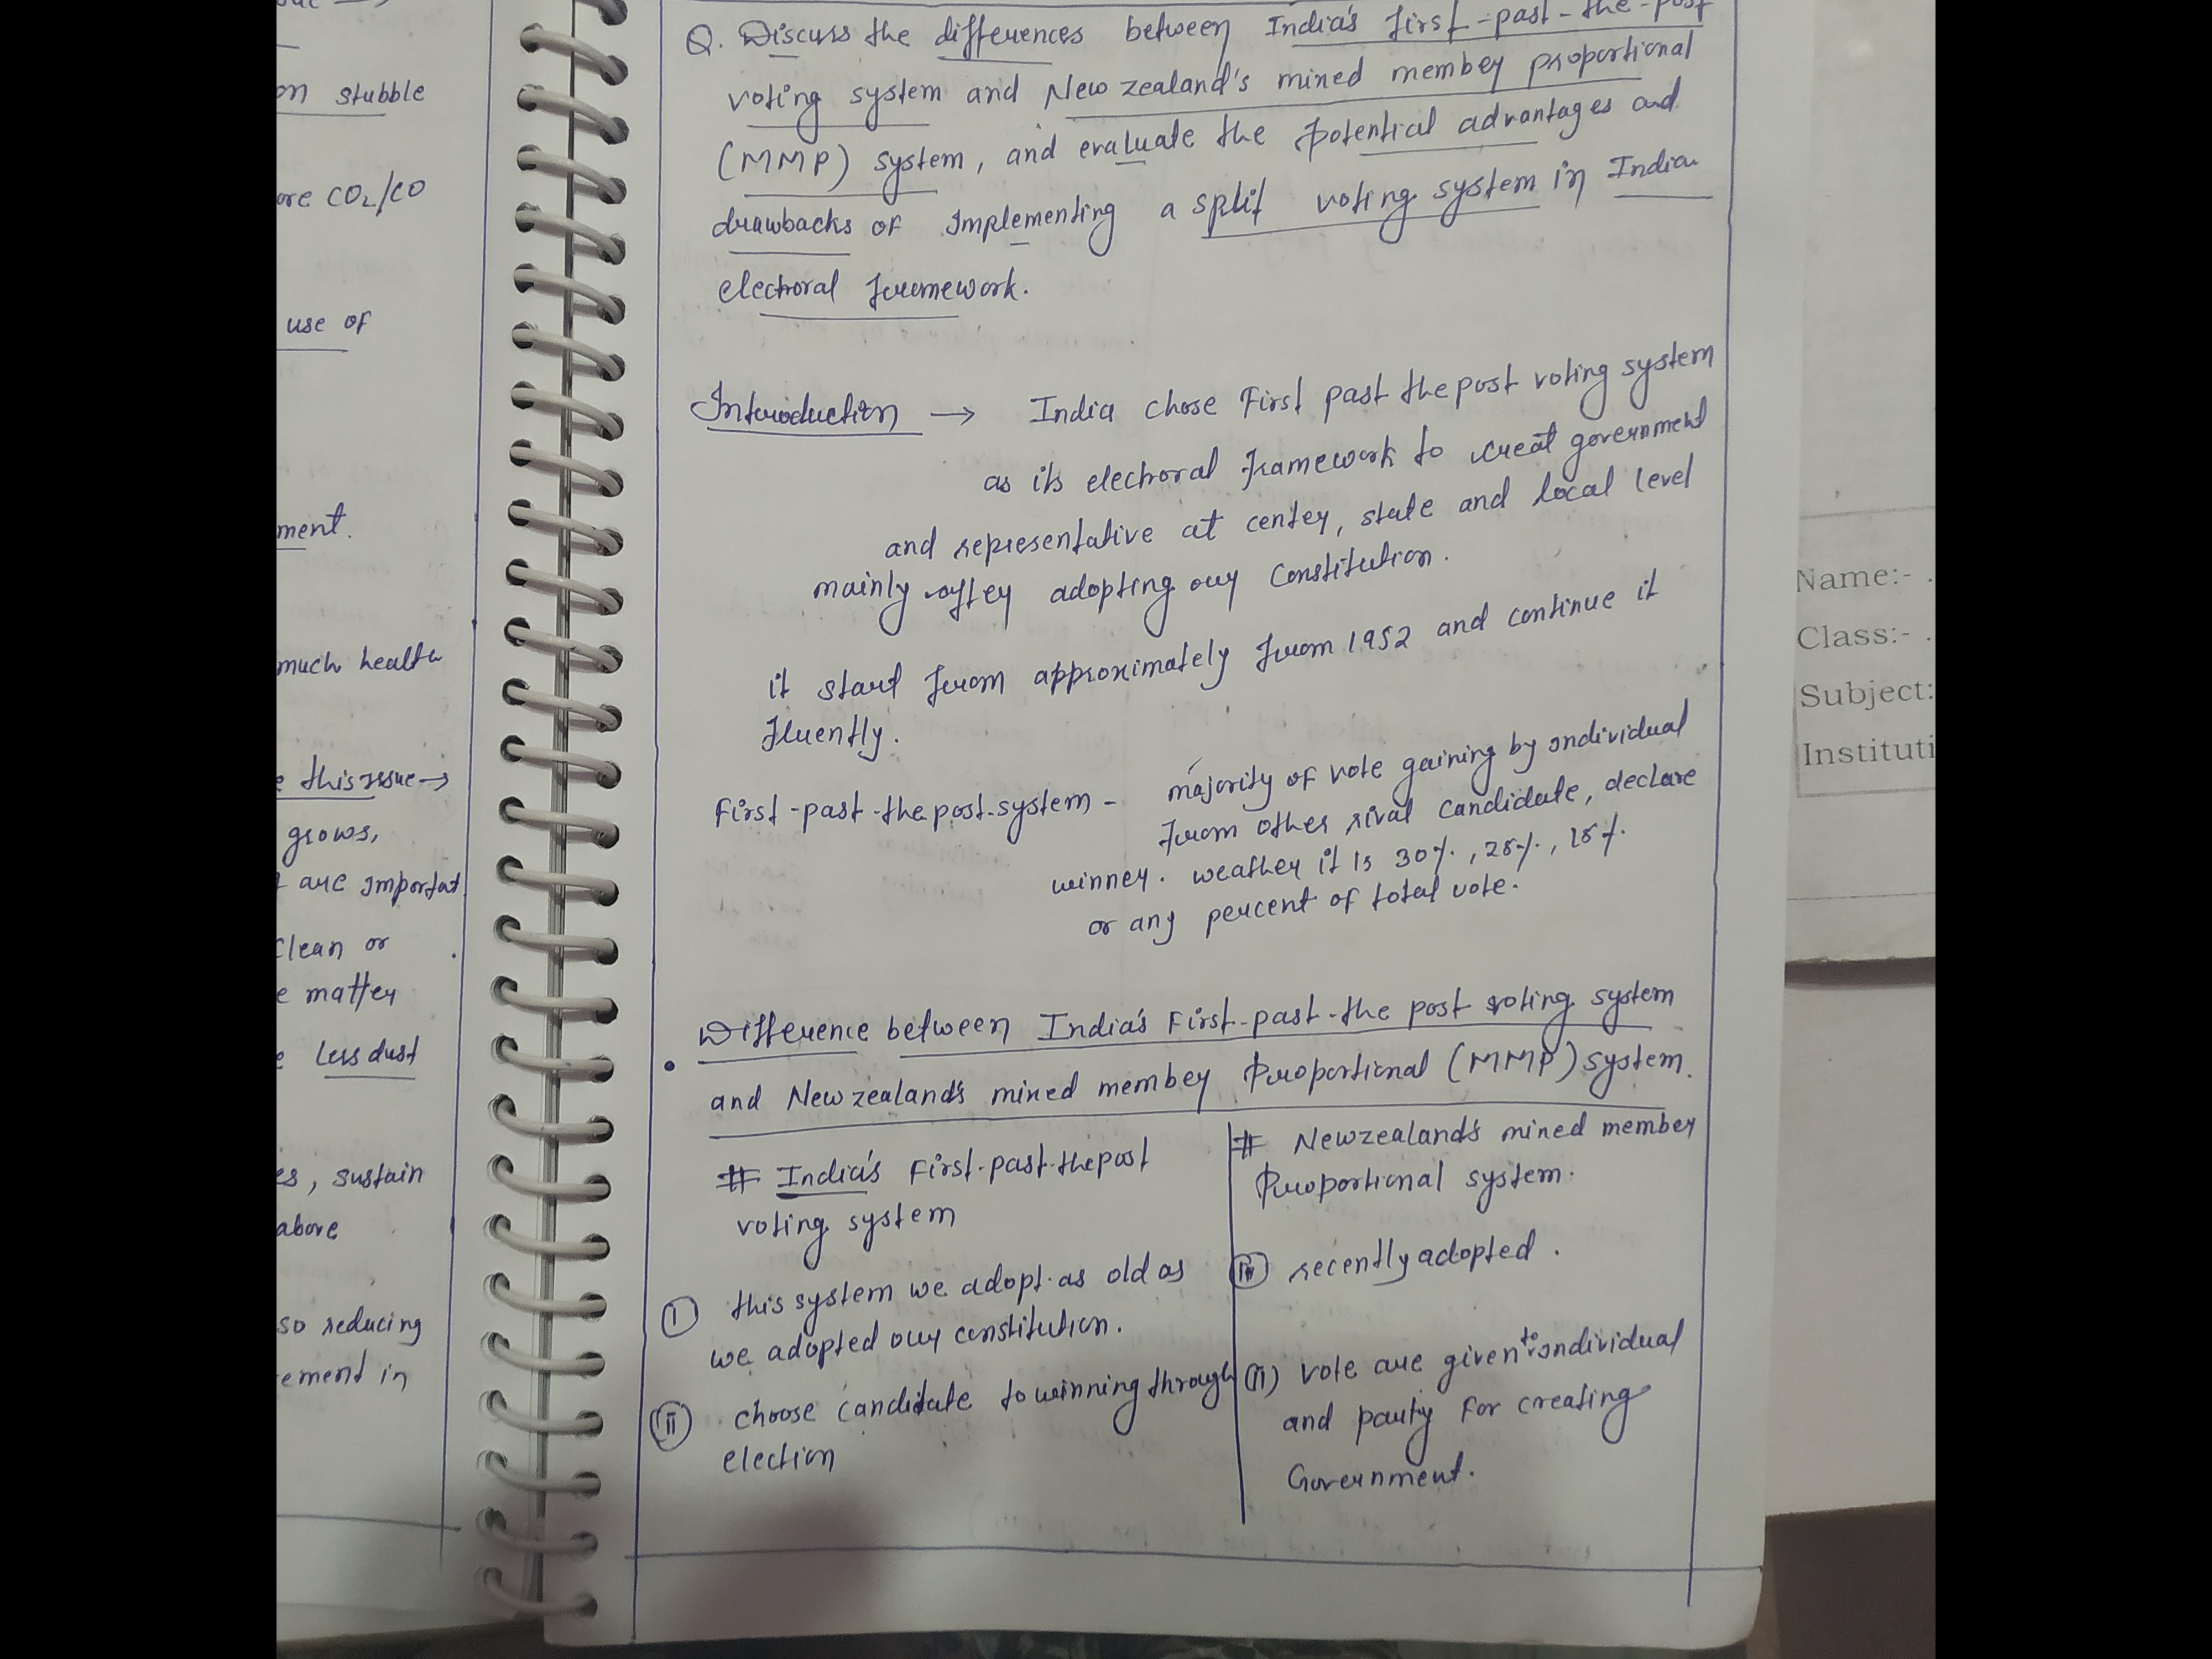 on stubble
ore CO₂/CO
use of
ment.
much health
this issue →
grows,
are importat
clean or
matter
less dust
es, sustain
above
so reducing
ement in
Q. Discuss the differences between India's first-past-the-post
voting system and New zealand's mixed member proportional
(MMP) system, and evaluate the potential advantages and
drawbacks of implementing a split voting system in India
electoral framework.
Introduction → India chose First past the post voting system
as its electoral framework to creat government
and representative at center, state and local level
mainly after adopting our Constitution.
it start from approximately from 1952 and continue it
fluently.
First-past-the post-system - majority of vote gaining by individual
from other rival candidate, declare
winner. weather it is 30%, 28%, 18%.
or any percent of total vote.
• Difference between India's First-past-the post voting system
and New zealand's mixed member Proportional (MMP) system.
# India's First-past-the post
voting system
(i) this system we adopt as old as
we adopted our constitution.
(ii) choose candidate to winning through
election
# Newzealand's mixed member
Proportional system.
recently adopted.
(ii) vote are given to individual
and party for creating
Government.
Name:- .
Class:- .
Subject:
Instituti